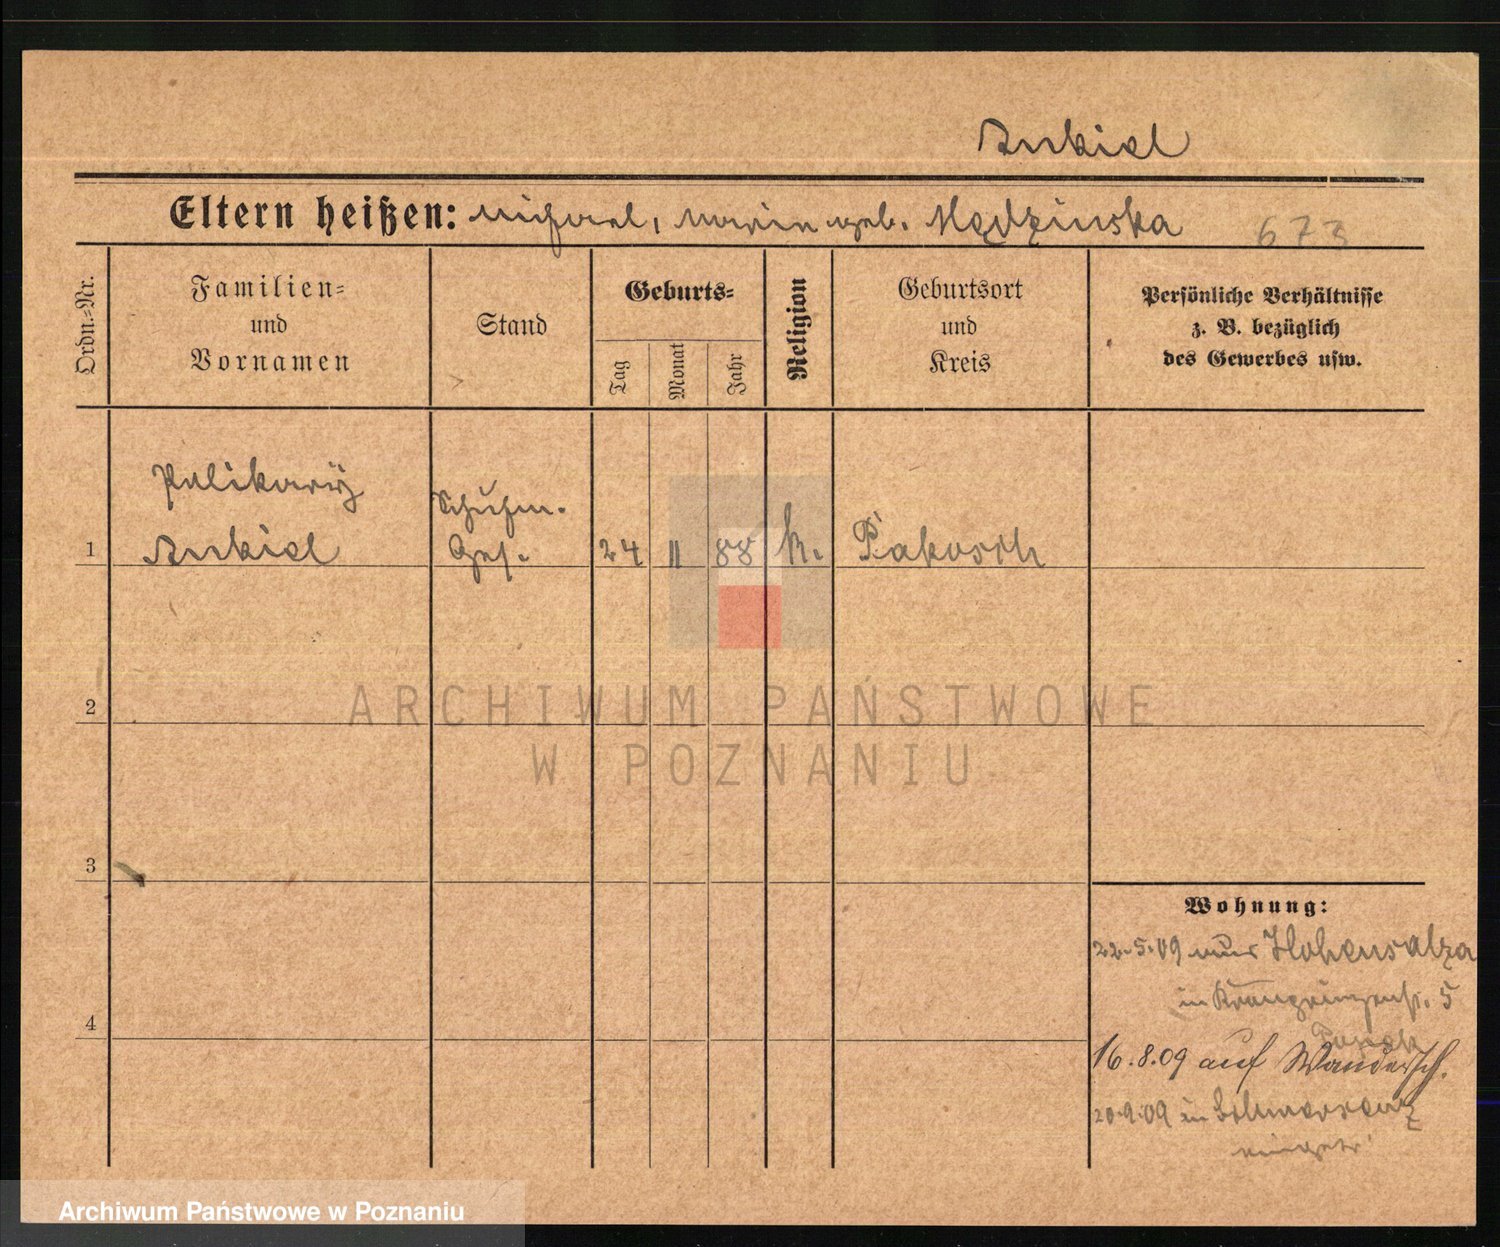 Ankiel
Eltern heißen: Michael, Marie geb. Mędzinska 673
Ordn.-Nr.
Familien-
und
Vornamen
Stand
Geburts-
Tag
Monat
Jahr
Religion
Geburtsort
und
Kreis
Persönliche Verhältnisse
z. B. bezüglich
des Gewerbes usw.
Polikarp
Schuhm.
1 Ankiel Ges. 24 11 88 k. Pakosch
2
3
4
Wohnung:
22.5.09 aus Hohensalza
in Kronprinzenst. 5
16.8.09 auf Wandersch.
20.9.09 in
ARCHIWUM PAŃSTWOWE
W POZNANIU
Archiwum Państwowe w Poznaniu